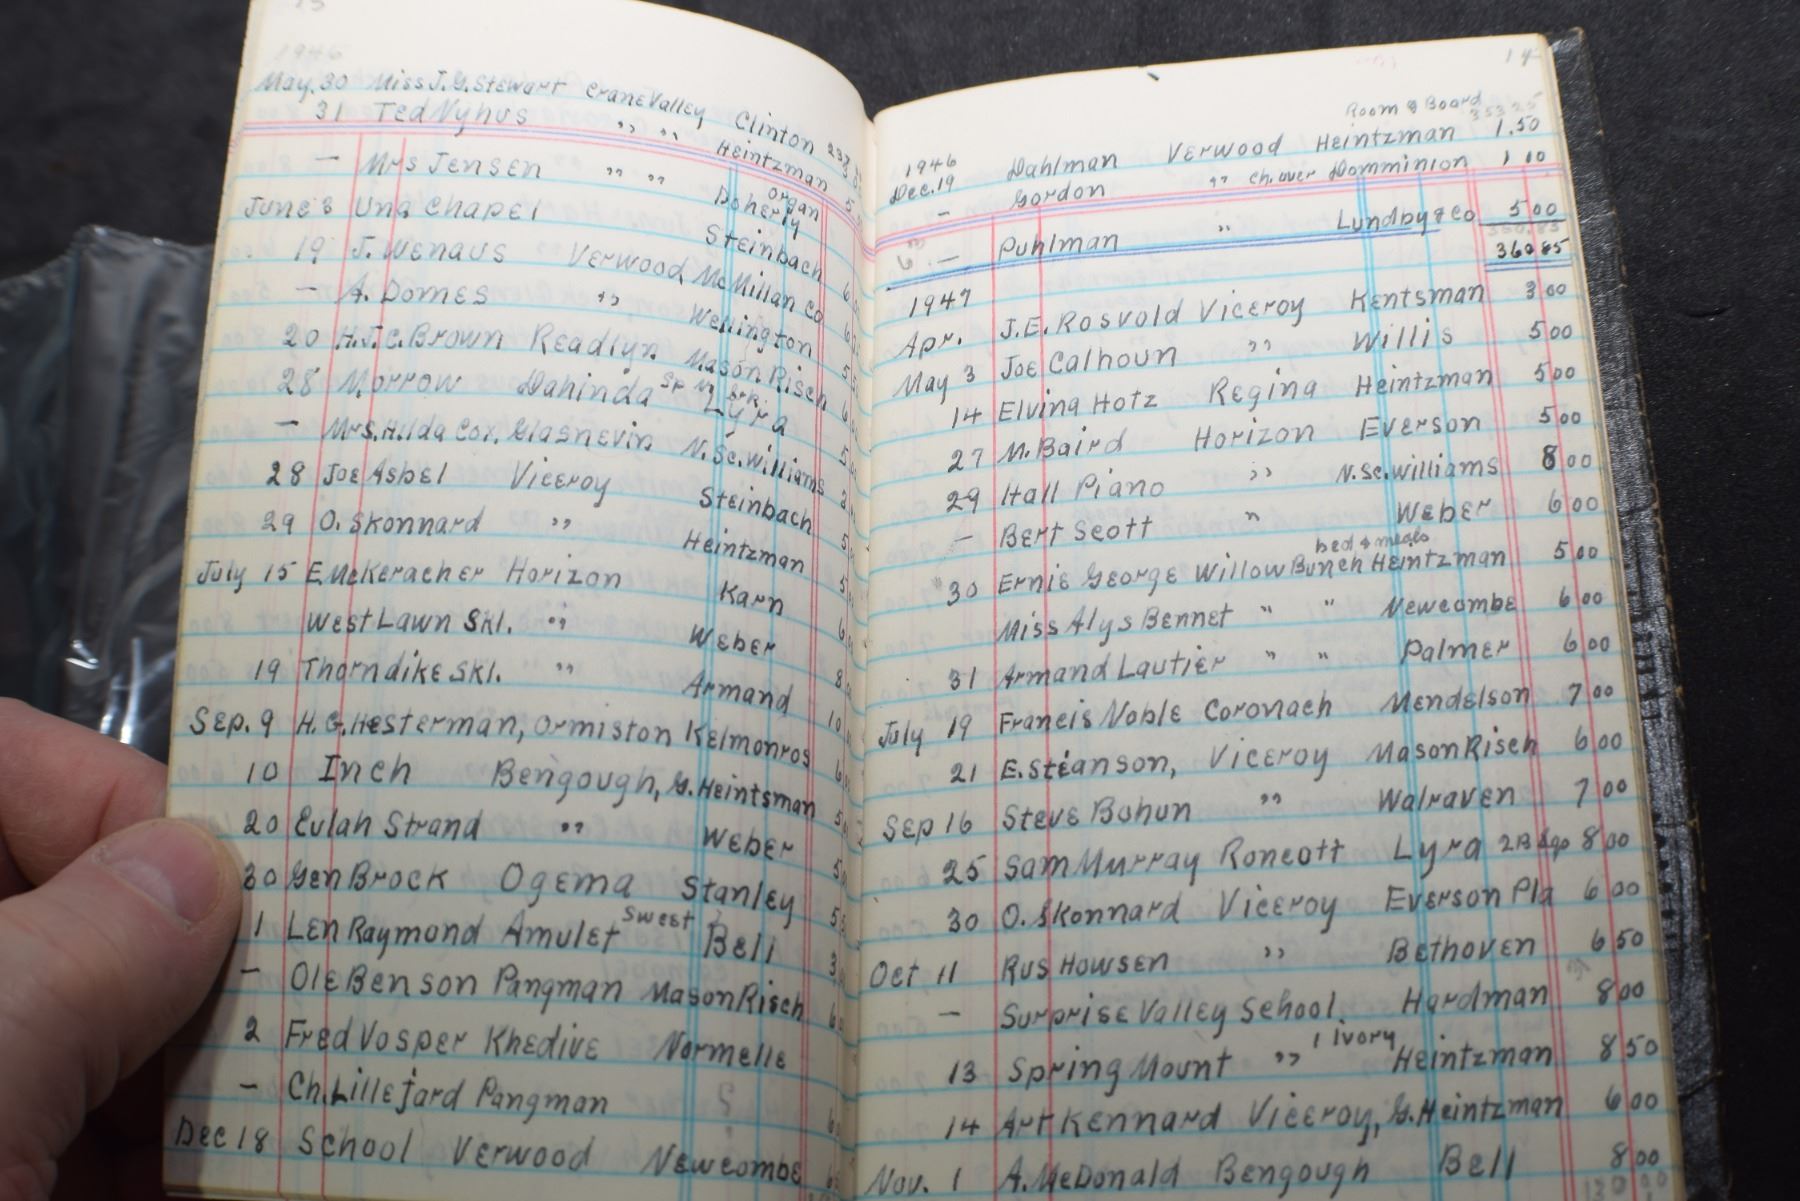 1946
May. 30 Miss J.G. Stewart Crane Valley Clinton
31 Ted Nyhus " " Heintzman
— Mrs Jensen " " organ Doherty
June 8 Una Chapel Steinbach
19 J. Wenaus Verwood McMillan Co
— A. Domes " Wellington
20 H.J.C. Brown Readlyn Mason Risch
28 Morrow Dahinda Lyra
— Mrs. Hilda Cox, Glasnevin N. Sc. Williams
28 Joe Asbel Viceroy Steinbach
29 O. Skonnard " Heintzman
July 15 E McKeracher Horizon Karn
West Lawn Skl. " Weber
19 Thorndike Skl. " Armand
Sep. 9 H.G. Hesterman, Ormiston Kelmonros
10 Inch Bengough, G. Heintsman
20 Eulah Strand " Weber
30 Gen Brock Ogema Stanley
1 Len Raymond Amulet Sweet Bell
— Ole Benson Pangman Mason Risch
2 Fred Vosper Khedive Normelle
— Ch. Lillejard Pangman ?
Dec 18 School Verwood Newcombe
14
Room & Board 353 25
1946
Dec. 19 Dahlman Verwood Heintzman 1.50
— Gordon " ch. over Domminion 1 10
— Puhlman " Lundby & Co 5 00
360 85
1947
Apr. J.E. Rosvold Viceroy Kentsman 3 00
May 3 Joe Calhoun " Willis 5 00
14 Elving Hotz Regina Heintzman 5 00
27 M. Baird Horizon Everson 5 00
29 Hall Piano " N. Sc. Williams 8 00
— Bert Scott " Weber 6 00
bed & meals
30 Ernie George Willow Bunch Heintzman 5 00
Miss Alys Bennet " " Newcombe 6 00
31 Armand Lautier " " Palmer 6 00
July 19 Francis Noble Coronach Mendelson 7 00
21 E. Steanson, Viceroy Mason Risch 6 00
Sep 16 Steve Bohun " Walraven 7 00
25 Sam Murray Roncott Lyra 8 00
30 O. Skonnard Viceroy Everson Pla 6 00
Oct 11 Rus Howsen " Bethoven 6 50
— Surprise Valley School. Hardman 8 00
13 Spring Mount " 1 ivory Heintzman 8 50
14 Art Kennard Viceroy, G. Heintzman 6 00
Nov. 1 A. McDonald Bengough Bell 8 00